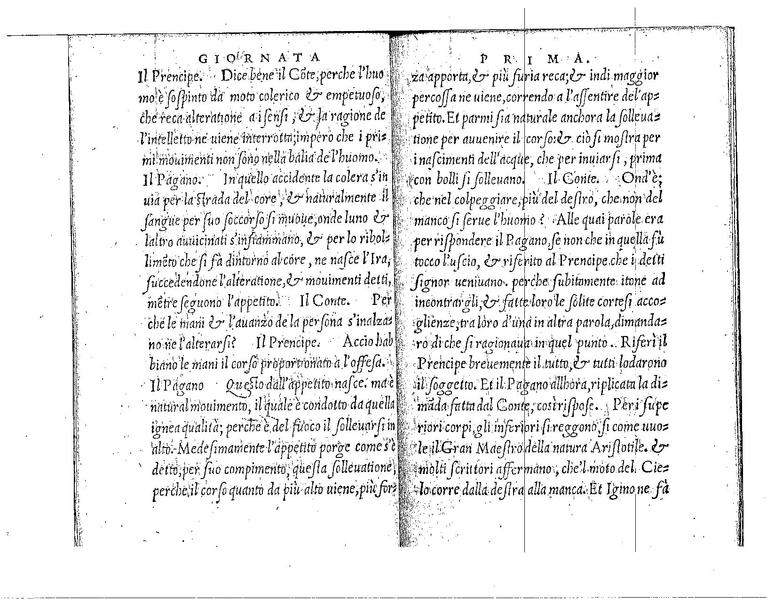 GIORNATA
Il Prencipe. Dice bene il Cõte, perche l'huo
mo è sospinto da moto colerico & empetuoso,
che reca alteratione a i sensi, & la ragione de
l'intelletto ne viene interrotta; impero che i pri=
mi movimenti non sono nella balia de l'huomo.
Il Pagano. In quello accidente la colera s'in
uia per la strada del core, & naturalmente il
sangue per suo soccorso si muoue, onde luno &
laltro auuicinati s'infiammano, & per lo ribol=
limēto che si fà dintorno al core, ne nasce l'Ira,
succedendone l'alteratione, & mouimenti detti,
mētre seguono l'appetito. Il Conte. Per
che le mani & l'auanzo de la persona s'inalza=
no ne l'alterarsi? Il Prencipe. Accio hab
biano le mani il corso proportionato a l'offesa.
Il Pagano Questo dall'appetito nasce. ma è
natural mouimento, il quale è condotto da quella
ignea qualità; perche è del fuoco il solleuarsi in
alto. Medesimamente l'appetito porge come s'è
detto, per suo compimento, questa solleuatione,
perche, il corso quanto da più alto uiene, più for=
PRIMA.
za apporta, & più furia reca; & indi maggior
percossa ne uiene, correndo a l'assentire del'ap=
petito. Et parmi sia naturale anchora la solleua=
tione per auuenire il corso: & ciò si mostra per
i nascimenti dell'acque, che per inuiarsi, prima
con bolli si solleuano. Il Conte. Ond'è;
che nel colpeggiare, più del destro, che non del
manco si serue l'huomo? Alle quai parole era
per rispondere il Pagano, se non che in quella fù
tocco l'uscio, & riferito al Prencipe che i detti
signor ueniuano. perche subitamente itone ad
incontrargli, & fatte loro le solite cortesi acco=
glienze, tra loro d'una in altra parola, dimanda=
ro di che si ragionaua in quel punto. Riferì il
Prencipe breuemente il tutto, & tutti lodarono
il soggetto. Et il Pagano allhora, riplicata la di=
mãda fatta dal Conte, così rispose. Per i supe
riori corpi, gli inferiori si reggono, si come uuo=
le il Gran Maestro della natura Aristotile. &
molti scrittori affermano, che'l moto del Cie=
lo corre dalla destra alla manca. Et Igino ne fà